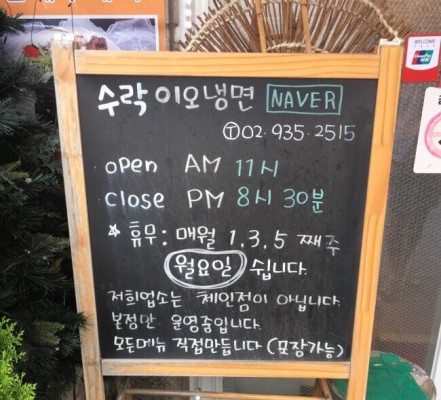 수락 이오냉면 NAVER
ⓣ 02·935·2515
open AM 11시
close PM 8시 30분
* 휴무: 매월 1.3.5 째주
월요일 쉽니다.
저희업소는 체인점이 아닙니다.
본점만 운영중입니다.
모든메뉴 직접만듭니다 (포장가능)
WELCOME